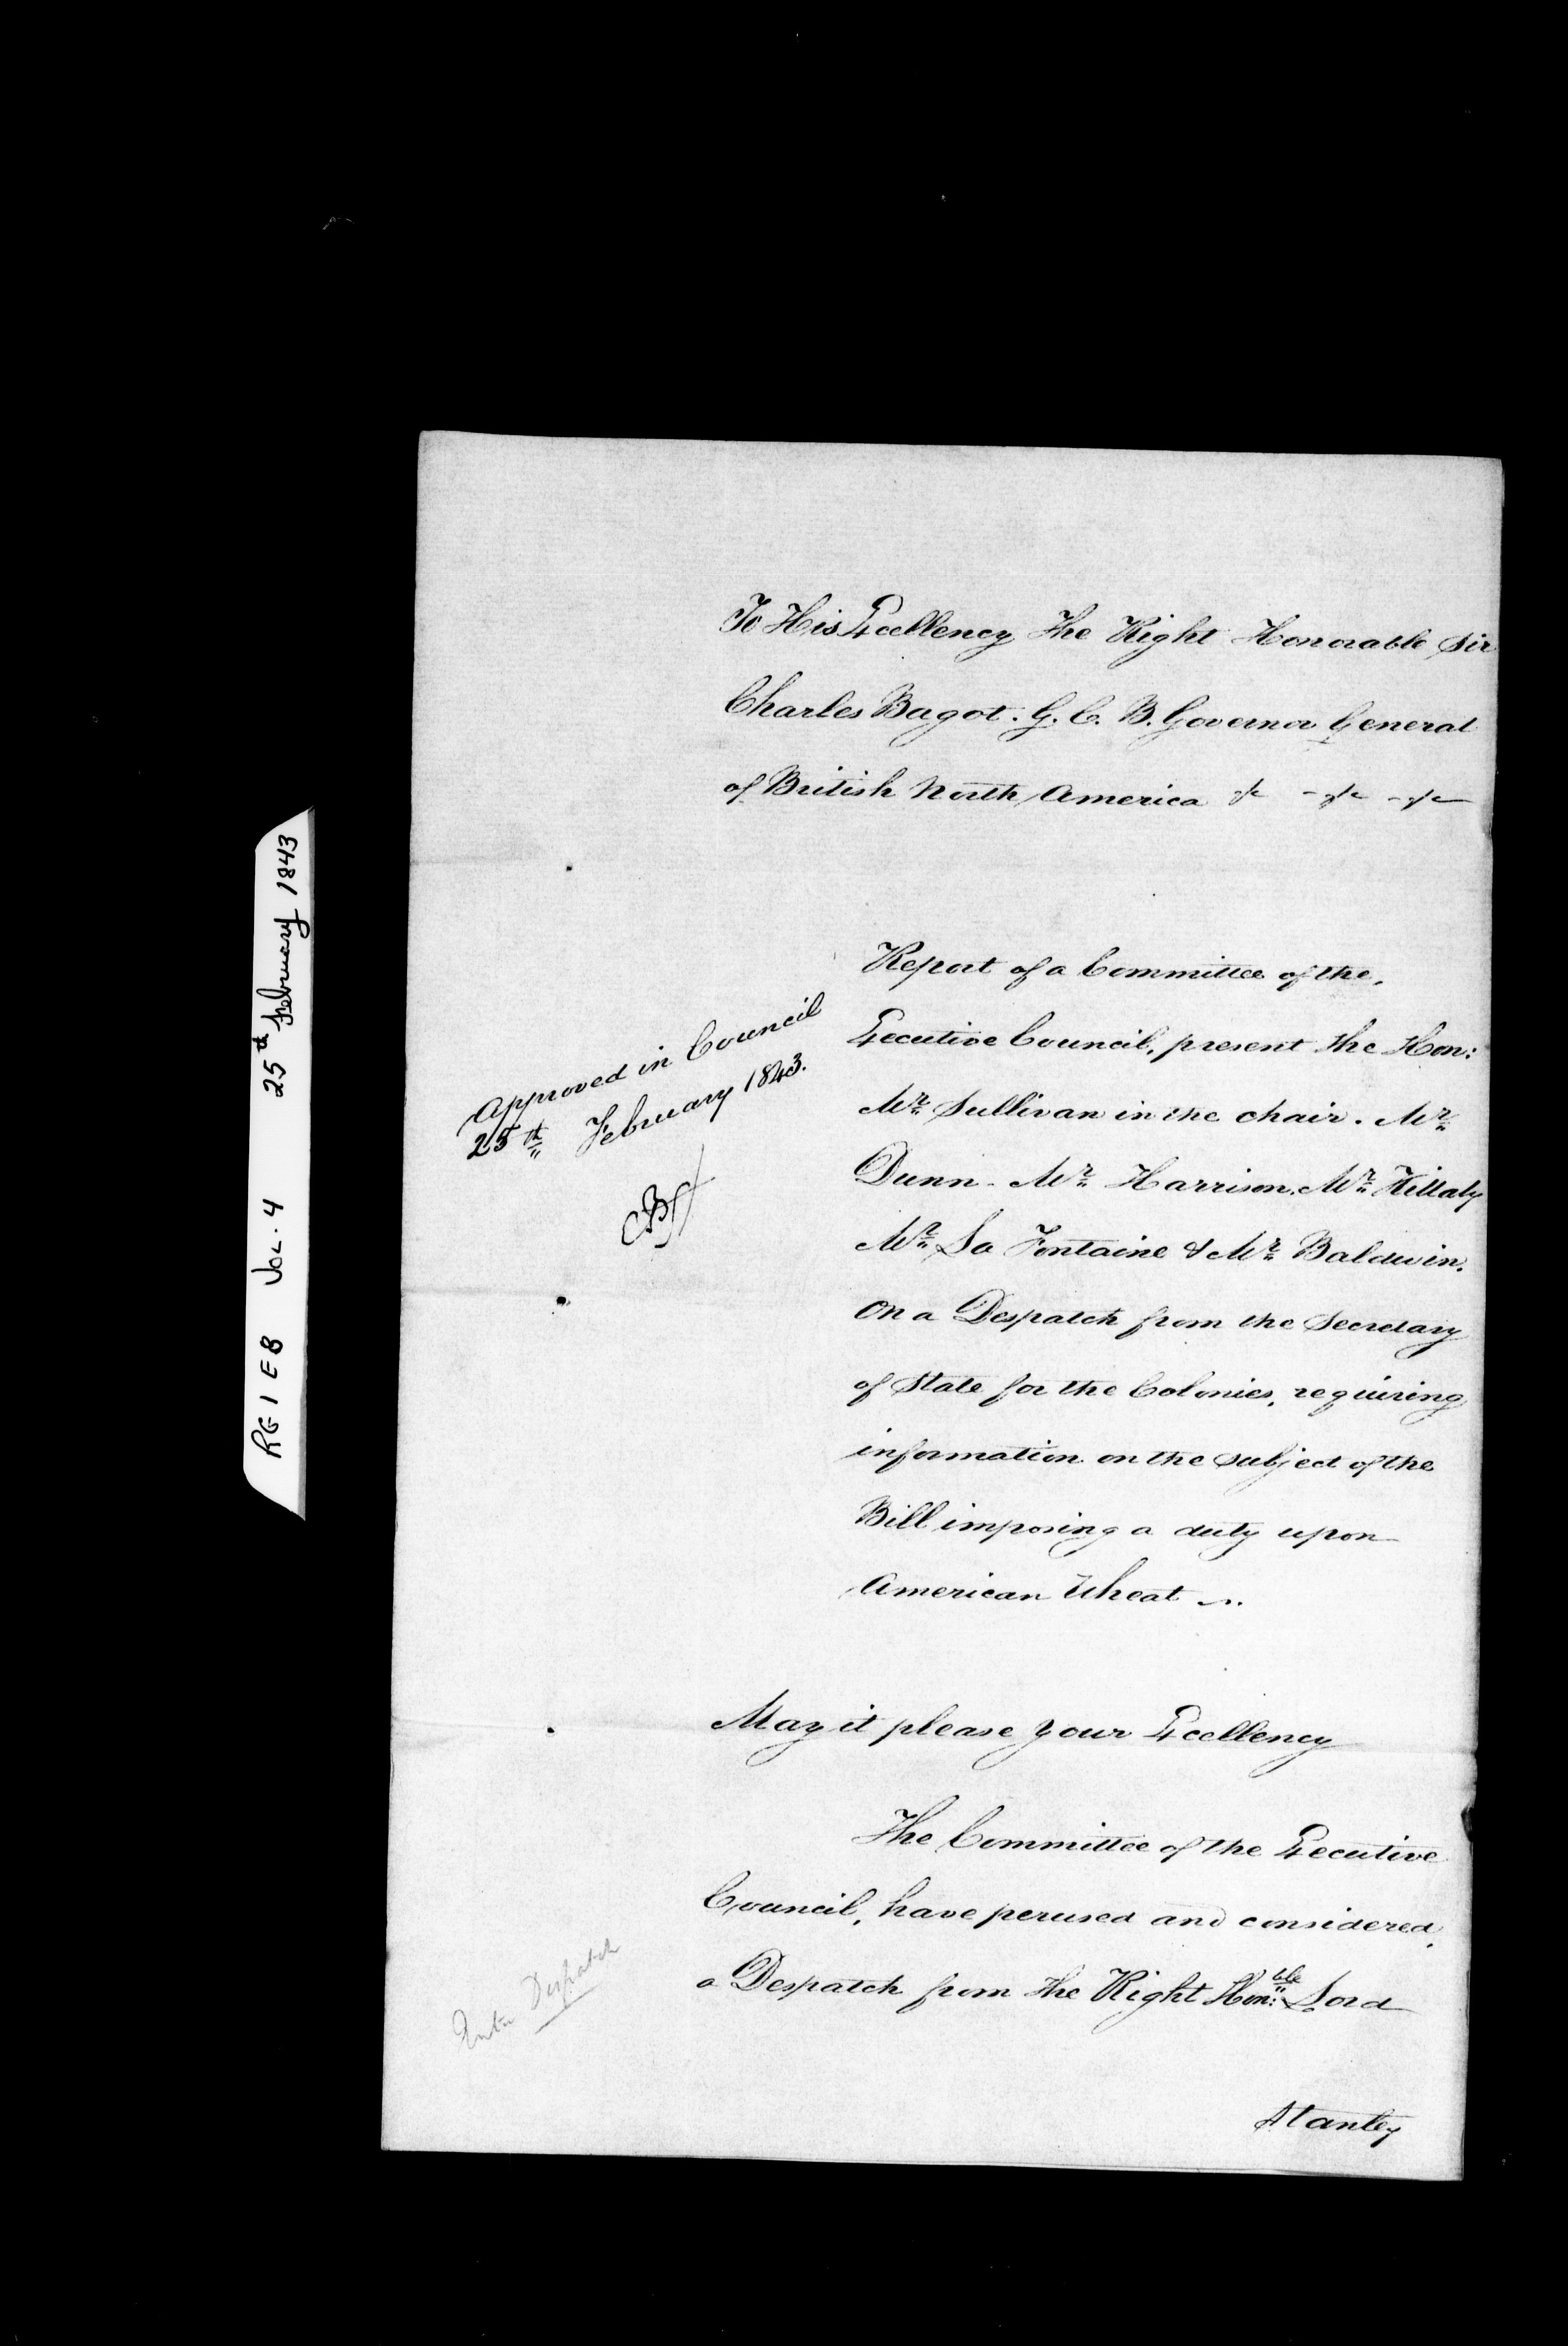 RG 1 E 8 Vol. 4 25th February 1843
To His Excellency The Right Honorable Sir
Charles Bagot. G. C. B. Governor General
of British North America &c - &c - &c
Approved in Council
25th February 1843.
CB
Report of a Committee of the,
Executive Council, present the Hon:
Mr. Sullivan in the chair. Mr.
Dunn - Mr. Harrison. Mr. Killaly
Mr. La Fontaine & Mr. Baldwin.
On a Despatch from the Secretary
of State for the Colonies, requiring
information on the subject of the
Bill imposing a duty upon
American Wheat —.
May it please Your Excellency
The Committee of the Executive
Council, have perused and considered,
a Despatch from the Right Hon:ble Lord
Enter Despatch
Stanley